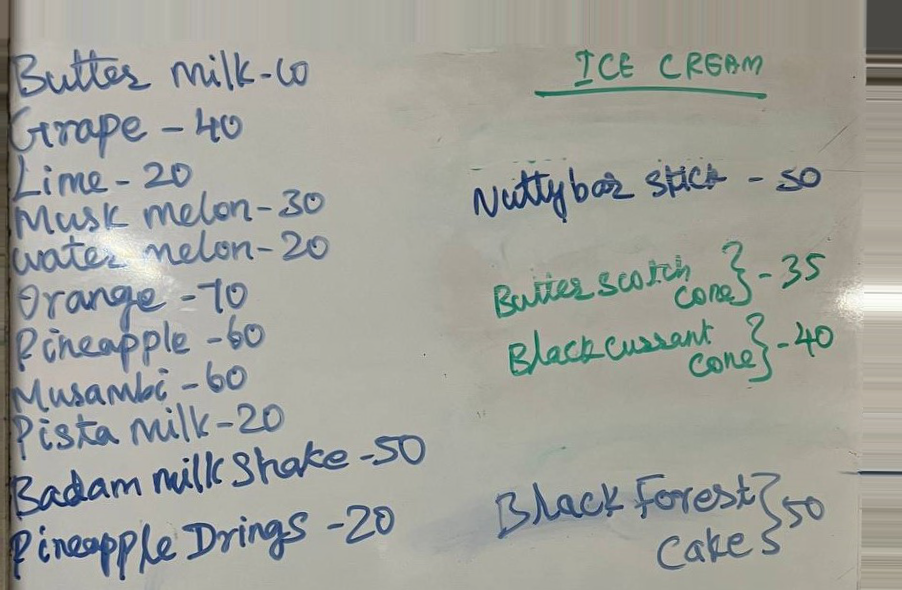 Butter milk-10
Grape - 40
Lime - 20
Musk melon-30
water melon-20
Orange -70
Pineapple -60
Musambi -60
Pista milk-20
Badam milk Shake -50
Pineapple Drings -20
ICE CREAM
Nuttybar stick - 50
Butterscotch
cone} -35
Blackcurrant
cone} -40
Black Forest
Cake} 50